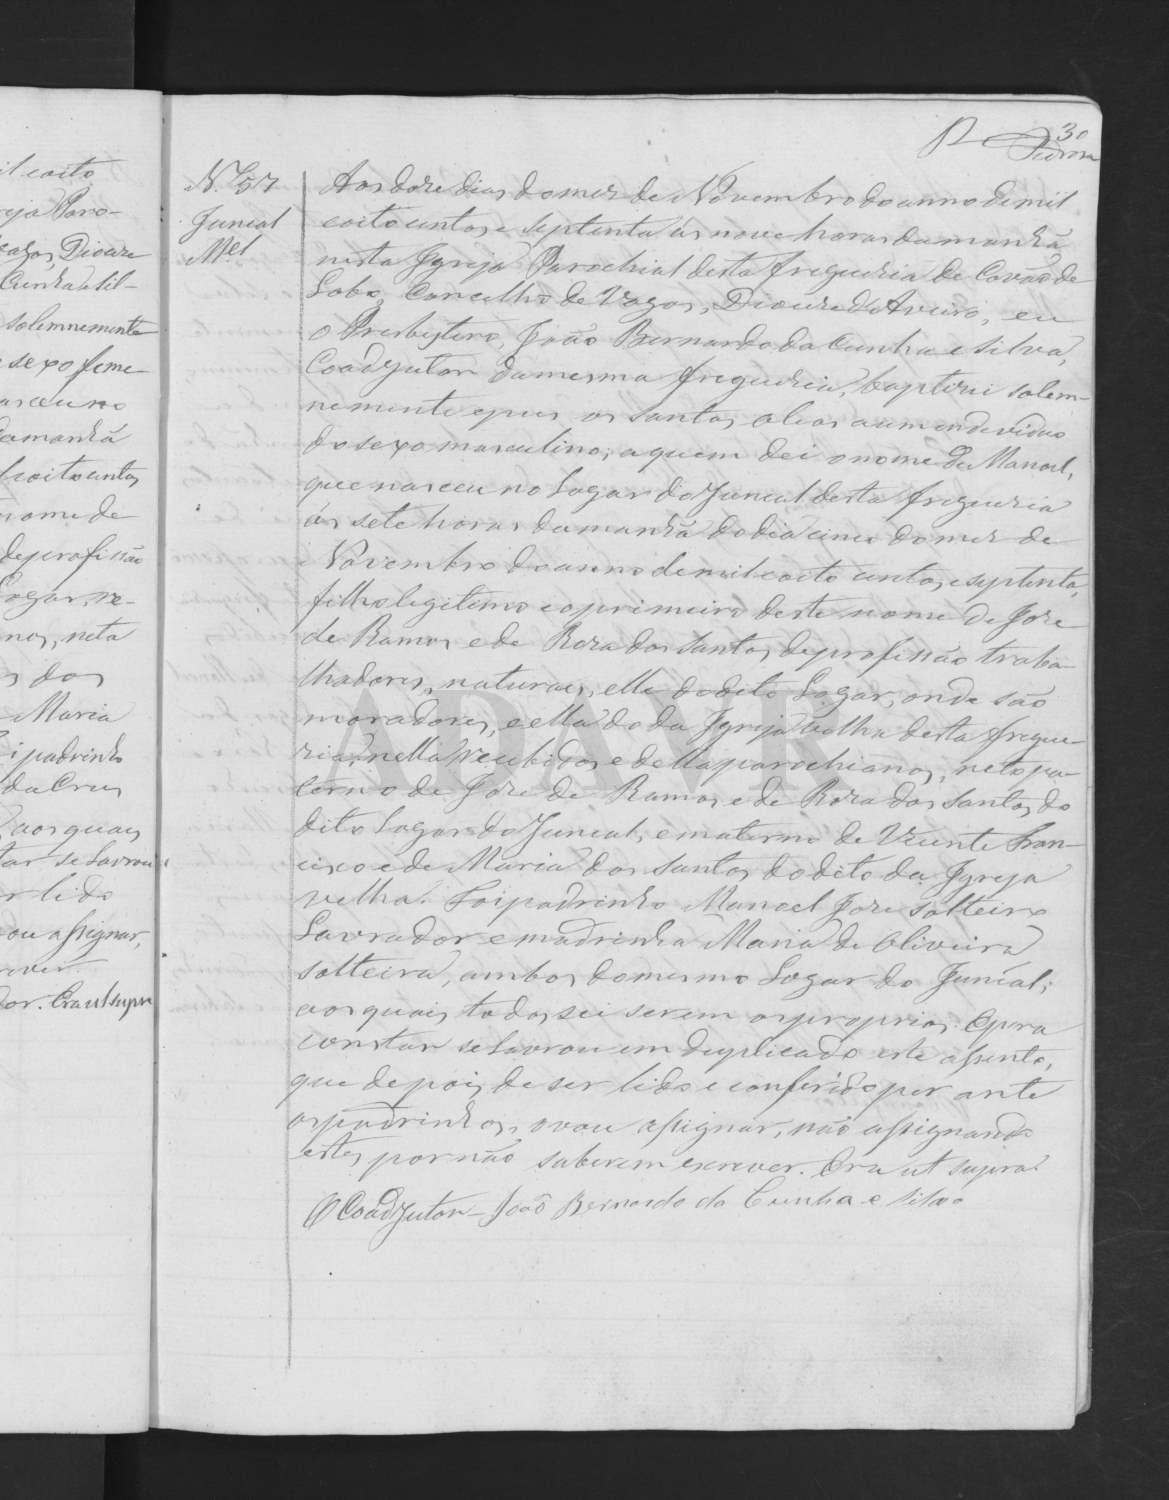 30
N.º 57
Juncal
Mel
Aos doze dias do mez de Novembro do anno de mil
e oito centos e septenta ás nove horas da manhã
nesta Igreja Parochial desta freguezia de Covão de
Lobo, Concelho de Vagos, Diocese d'Aveiro, eu
o Presbytero João Bernardo da Cunha e Silva,
Coadjutor da mesma freguezia, baptizei solem-
nemente e puz os santos oleos a um endeviduo
do sexo masculino, a quem dei o nome de Manoel,
que nasceu no Logar do Juncal desta freguezia
ás sete horas da manhã do dia cinco do mez de
Novembro do anno de mil e oito centos e septenta,
filho legitimo e o primeiro deste nome de Joze
de Ramos e de Roza dos Santos, de profissão traba-
lhadores, naturaes, elle do dito Logar, onde são
moradores, e ella do da Igreja velha desta fregue-
zia, nella recebidos e della parochianos, neto pa-
terno de Joze de Ramos e de Roza dos Santos, do
dito Logar do Juncal, e materno de Vicente Fran-
cisco e de Maria dos Santos do dito da Igreja
velha. Foi padrinho Manoel Joze solteiro
Lavrador e madrinha Maria de Oliveira
solteira, ambos do mesmo Logar do Juncal;
aos quais todos sei serem os proprios. E pra
constar se lavrou em duplicado este assento,
que depois de ser lido e conferido per ante
os padrinhos, o vou assignar, não assignando
estes por não saberem escrever. Era ut supra.
O Coadjutor – João Bernardo da Cunha e Silva
il e oito
reja Paro-
Vagos, Diocese
Cunha e Sil-
solemnemente
sexo feme-
nasceu no
da manhã
e oito centos
nome de
de profissão
Logar, re-
nos, neta
s dos
Maria
i padrinho
da Cruz
aos quaes
tar se lavrou
r lido
vou assignar,
rever.
dor. Era ut supra
ADAVR